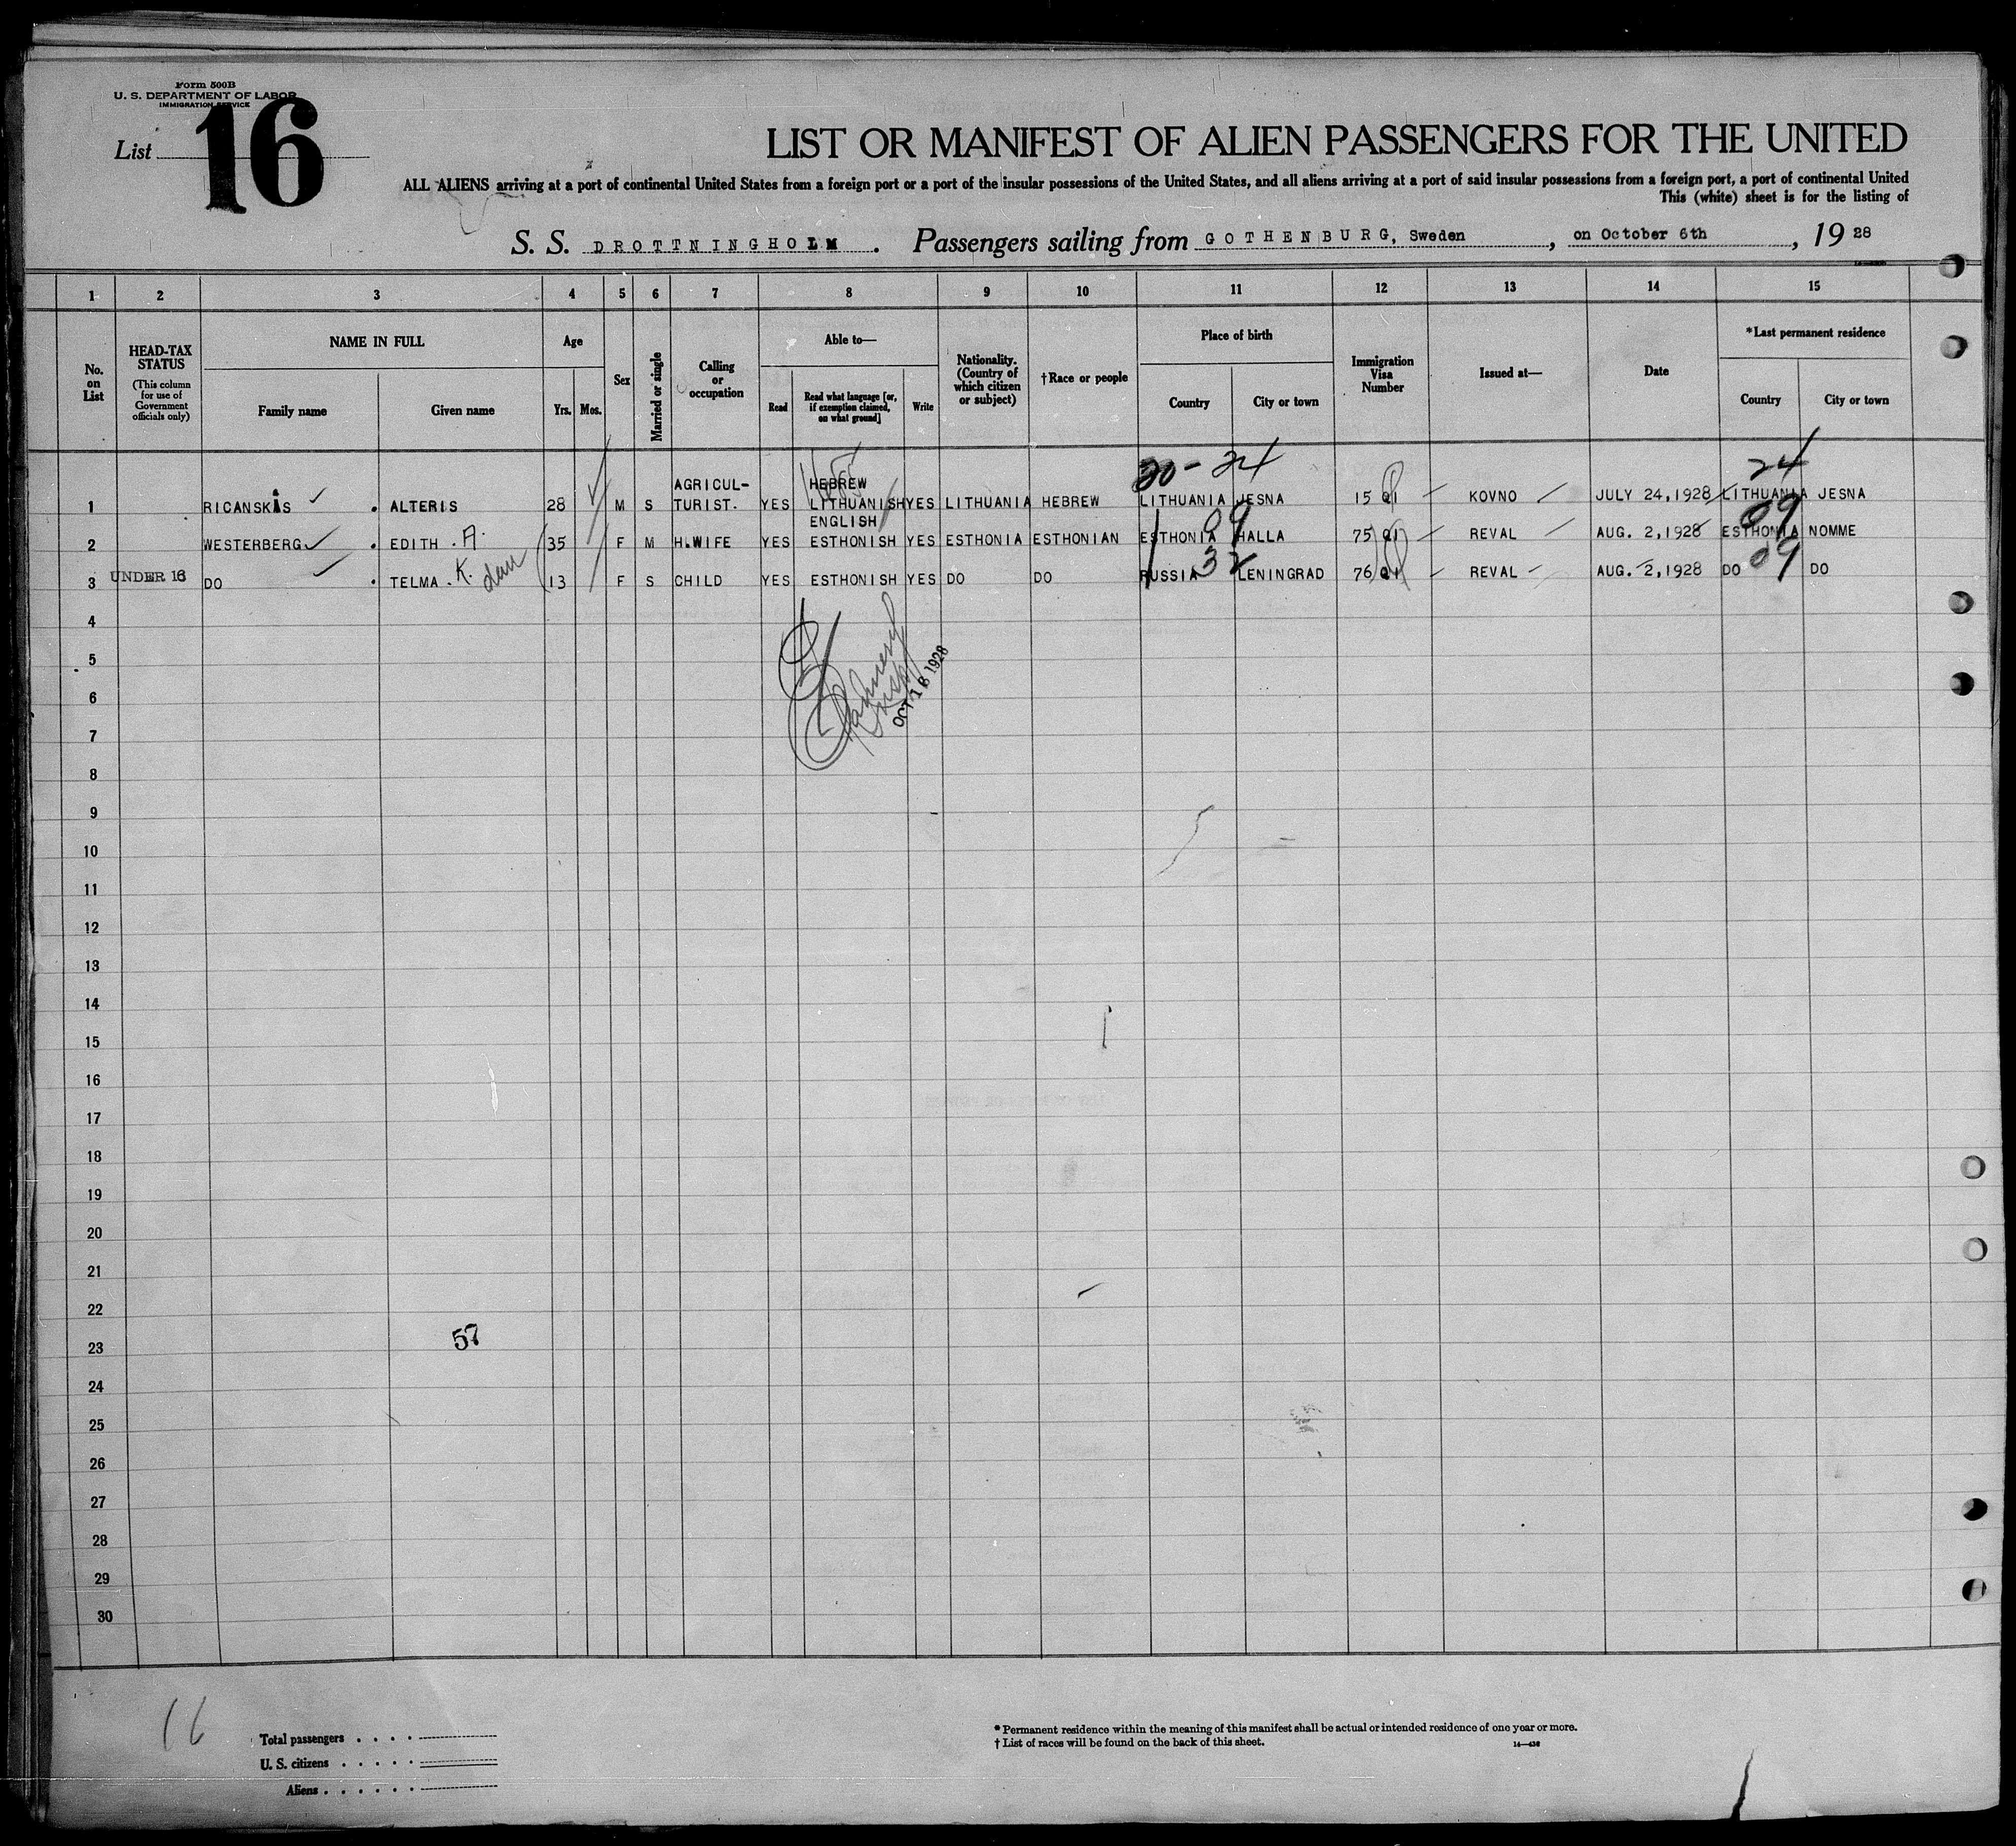 Form 500B
U. S. DEPARTMENT OF LABOR
IMMIGRATION SERVICE
List 16
LIST OR MANIFEST OF ALIEN PASSENGERS FOR THE UNITED
ALL ALIENS arriving at a port of continental United States from a foreign port or a port of the insular possessions of the United States, and all aliens arriving at a port of said insular possessions from a foreign port, a port of continental United
This (white) sheet is for the listing of
S. S. DROTTNINGHOLM . Passengers sailing from GOTHENBURG, Sweden, on October 6th, 19 28
1 2 3 4 5 6 7 8 9 10 11 12 13 14 15
No. on List
HEAD-TAX STATUS
(This column for use of Government officials only)
NAME IN FULL
Family name
Given name
Age
Yrs. Mos.
Sex
Married or single
Calling or occupation
Able to—
Read
Read what language [or, if exemption claimed, on what ground]
Write
Nationality. (Country of which citizen or subject)
†Race or people
Place of birth
Country
City or town
Immigration Visa Number
Issued at—
Date
*Last permanent residence
Country
City or town
20 - 24 24
AGRICUL- HEBREW
1 RICANSKAS . ALTERIS 28 M S TURIST. YES LITHUANISH YES LITHUANIA HEBREW LITHUANIA JESNA 15 QI KOVNO JULY 24,1928 LITHUANIA JESNA
ENGLISH 09 09
2 WESTERBERG . EDITH . A. 35 F M H.WIFE YES ESTHONISH YES ESTHONIA ESTHONIAN ESTHONIA HALLA 75 QI REVAL AUG. 2,1928 ESTHONIA NOMME
32 09
UNDER 16
3 DO . TELMA . K. dau 13 F S CHILD YES ESTHONISH YES DO DO RUSSIA LENINGRAD 76 QI REVAL AUG. 2,1928 DO DO
4
5
OCT 16 1928
6
7
8
9
10
11
12
13
14
15
16
17
18
19
20
21
22
57
23
24
25
26
27
28
29
30
16
Total passengers . . . .
U. S. citizens . . . . .
Aliens . . . . . .
* Permanent residence within the meaning of this manifest shall be actual or intended residence of one year or more.
† List of races will be found on the back of this sheet.
14—436